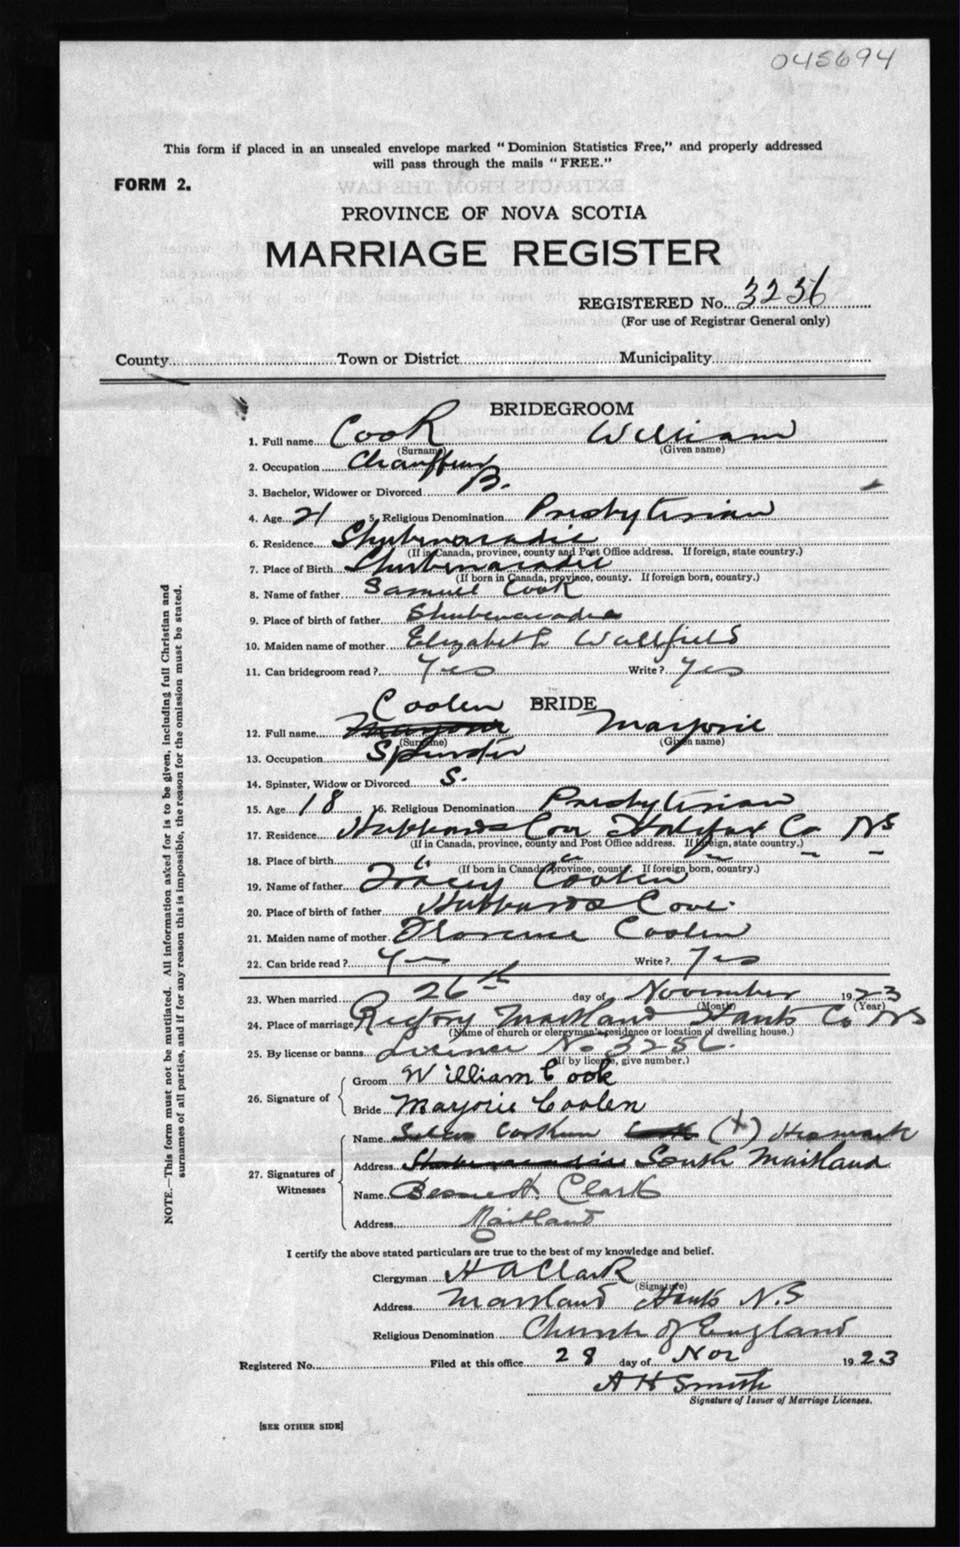 045694
This form if placed in an unsealed envelope marked "Dominion Statistics Free," and properly addressed
will pass through the mails "FREE."
FORM 2.
PROVINCE OF NOVA SCOTIA
MARRIAGE REGISTER
REGISTERED No. 3256
(For use of Registrar General only)
County Town or District Municipality
BRIDEGROOM
1. Full name Cook William
(Surname) (Given name)
2. Occupation Chauffeur
3. Bachelor, Widower or Divorced B.
4. Age 21 5. Religious Denomination Presbyterian
6. Residence Shubenacadie
(If in Canada, province, county and Post Office address. If foreign, state country.)
7. Place of Birth Shubenacadie
(If born in Canada, province, county. If foreign born, country.)
8. Name of father Samuel Cook
9. Place of birth of father Shubenacadie
10. Maiden name of mother Elizabeth Wallfield
11. Can bridegroom read? Yes Write? Yes
Coolen BRIDE
12. Full name Marjorie Marjorie
(Surname) (Given name)
13. Occupation Spinster
14. Spinster, Widow or Divorced S.
15. Age 18 16. Religious Denomination Presbyterian
17. Residence Hubbards Cove Halifax Co NS
(If in Canada, province, county and Post Office address. If foreign, state country.)
18. Place of birth " "
(If born in Canada, province, county. If foreign born, country.)
19. Name of father Tracey Coolen
20. Place of birth of father Hubbards Cove.
21. Maiden name of mother Florence Coolen
22. Can bride read? Yes Write? Yes
23. When married 26th day of November 1923
(Month) (Year)
24. Place of marriage Rectory Maitland Hants Co NS
(Name of church or clergyman's residence or location of dwelling house.)
25. By license or banns Licence No 3256.
(If by license, give number.)
26. Signature of Groom William Cook
Bride Marjorie Coolen
27. Signatures of Witnesses
Name (X) His mark
Address Shubenacadie South Maitland
Name Bessie H. Clark
Address Maitland
I certify the above stated particulars are true to the best of my knowledge and belief.
Clergyman H A Clark
(Signature)
Address Maitland Hants N.S
Religious Denomination Church of England
Registered No. Filed at this office 28 day of Nov 1923
A H Smith
Signature of Issuer of Marriage Licenses.
[SEE OTHER SIDE]
NOTE.—This form must not be mutilated. All information asked for is to be given, including full Christian and
surnames of all parties, and if for any reason this is impossible, the reason for the omission must be stated.